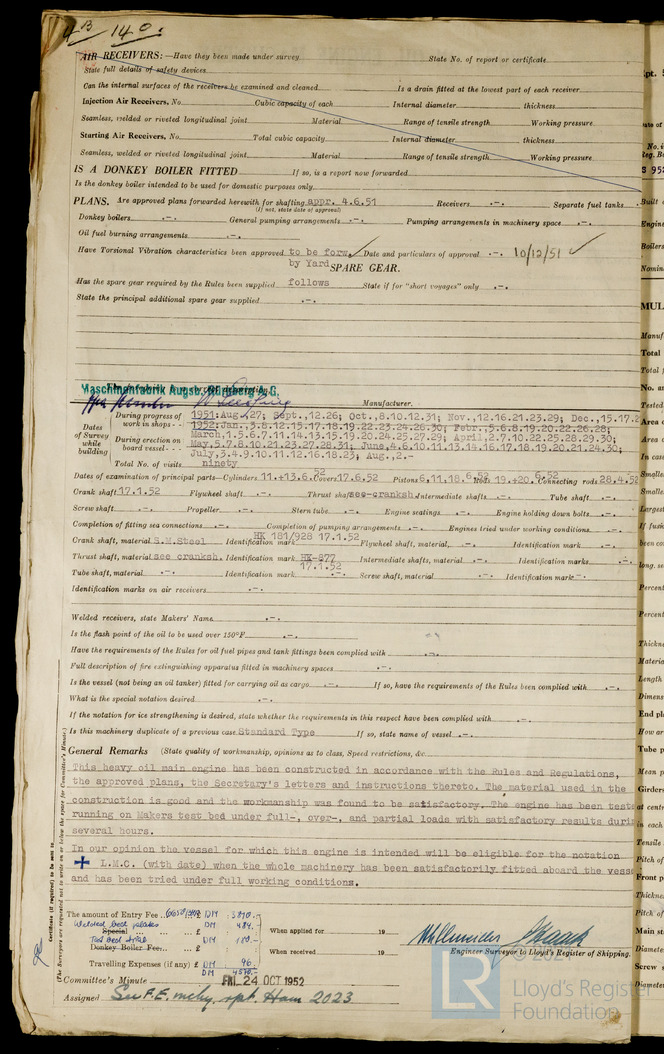 4B 140.
AIR RECEIVERS:—Have they been made under survey State No. of report or certificate
State full details of safety devices
Can the internal surfaces of the receivers be examined and cleaned Is a drain fitted at the lowest part of each receiver
Injection Air Receivers, No. Cubic capacity of each Internal diameter thickness
Seamless, welded or riveted longitudinal joint Material Range of tensile strength Working pressure
Starting Air Receivers, No. Total cubic capacity Internal diameter thickness
Seamless, welded or riveted longitudinal joint Material Range of tensile strength Working pressure
IS A DONKEY BOILER FITTED If so, is a report now forwarded
Is the donkey boiler intended to be used for domestic purposes only
PLANS. Are approved plans forwarded herewith for shafting appr. 4.6.51 Receivers -.- Separate fuel tanks
(If not, state date of approval)
Donkey boilers -.- General pumping arrangements -.- Pumping arrangements in machinery space -.-
Oil fuel burning arrangements -.-
Have Torsional Vibration characteristics been approved to be forw. Date and particulars of approval -.- 10/12/51
by Yard SPARE GEAR.
Has the spare gear required by the Rules been supplied follows State if for "short voyages" only -.-
State the principal additional spare gear supplied -.-
Maschinenfabrik Augsb.-Nürnberg A.G.
Manufacturer.
Dates of Survey while building
During progress of work in shops - - 1951:Aug.,27; Sept.,12.26; Oct.,8.10.12.31; Nov.,12.16.21.23.29; Dec.,15.17.2
1952:Jan.,3.8.12.15.17.18.19.22.23.24.26.30; Febr.,5.6.8.19.20.22.26.28;
During erection on board vessel - - - March,1.5.6.7.11.14.13.15.19.20.24.25.27.29; April,2.7.10.22.25.28.29.30;
May,5.7.8.10.21.23.27.28.31; June,4.6.10.11.13.14.16.17.18.19.20.21.24.30;
July,3.4.9.10.11.12.16.18.23; Aug.,2.-
Total No. of visits ninety
Dates of examination of principal parts—Cylinders 11.+13.6.52 Covers 17.6.52 Pistons 6.11.18.6.52 Rods 19.+20.6.52 Connecting rods 28.4.52
Crank shaft 17.1.52 Flywheel shaft -.- Thrust shaft see-cranksh. Intermediate shafts -.- Tube shaft -.-
Screw shaft -.- Propeller -.- Stern tube -.- Engine seatings -.- Engine holding down bolts -.-
Completion of fitting sea connections -.- Completion of pumping arrangements -.- Engines tried under working conditions -.-
Crank shaft, material S.M.Steel Identification mark HK 181/928 17.1.52 Flywheel shaft, material -.- Identification mark -.-
Thrust shaft, material see cranksh. Identification mark HK-877 17.1.52 Intermediate shafts, material -.- Identification marks -.-
Tube shaft, material -.- Identification mark -.- Screw shaft, material -.- Identification mark -.-
Identification marks on air receivers -.-
Welded receivers, state Makers' Name -.-
Is the flash point of the oil to be used over 150°F -.-
Have the requirements of the Rules for oil fuel pipes and tank fittings been complied with -.-
Full description of fire extinguishing apparatus fitted in machinery spaces -.-
Is the vessel (not being an oil tanker) fitted for carrying oil as cargo -.- If so, have the requirements of the Rules been complied with -.-
What is the special notation desired -.-
If the notation for ice strengthening is desired, state whether the requirements in this respect have been complied with -.-
Is this machinery duplicate of a previous case Standard Type If so, state name of vessel -.-
General Remarks (State quality of workmanship, opinions as to class, Speed restrictions, &c.
This heavy oil main engine has been constructed in accordance with the Rules and Regulations,
the approved plans, the Secretary's letters and instructions thereto. The material used in the
construction is good and the workmanship was found to be satisfactory. The engine has been teste
running on Makers test bed under full-, over-, and partial loads with satisfactory results durin
several hours.
In our opinion the vessel for which this engine is intended will be eligible for the notation
+ L.M.C. (with date) when the whole machinery has been satisfactorily fitted aboard the vesse
and has been tried under full working conditions.
The amount of Entry Fee DM
Welded bed plates DM
Special
Test bed trial DM
Donkey Boiler Fee £
Travelling Expenses (if any) £ DM 96.
DM
When applied for 19
When received 19
Engineer Surveyor to Lloyd's Register of Shipping.
Committee's Minute FRI. 24 OCT 1952
Assigned See F.E. mchy. rpt. Ham 2023
Certificate (if required) to be sent to
(The Surveyors are requested not to write on or below the space for Committee's Minute.)
© 2021
LR
Lloyd's Register
Foundation